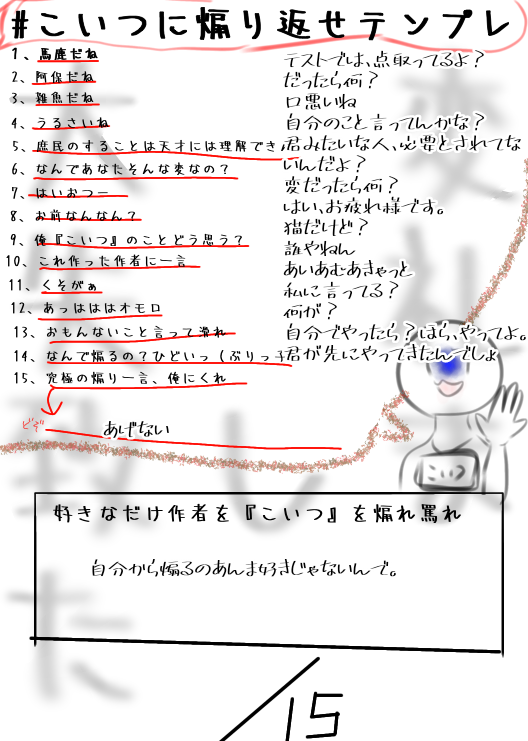 #こいつに煽り返せテンプレ
1、馬鹿だね
テストでは、点取ってるよ？
2、阿保だね
だったら何？
3、雑魚だね
口悪いね
4、うるさいね
自分のこと言ってんかな？
5、庶民のすることは天才には理解でき
君みたいな人、必要とされてな
いんだよ？
6、なんであなたそんな変なの？
変だったら何？
7、はいおつー
はい、お疲れ様です。
8、お前なんなん？
猫だけど？
9、俺『こいつ』のことどう思う？
誰やねん
10、これ作った作者に一言
あいあむあきゃっと
11、くそがぁ
私に言ってる？
12、あっはははオモロ
何が？
13、おもんないこと言って滑れ
自分でやったら？ほら、やってよ。
14、なんで煽るの？ひどいっ（ぶりっ子
君が先にやってきたんでしょ
15、究極の煽り一言、俺にくれ
どぞ
あげない
こいつ
好きなだけ作者を『こいつ』を煽れ罵れ
自分から煽るのあんま好きじゃないんで。
/15